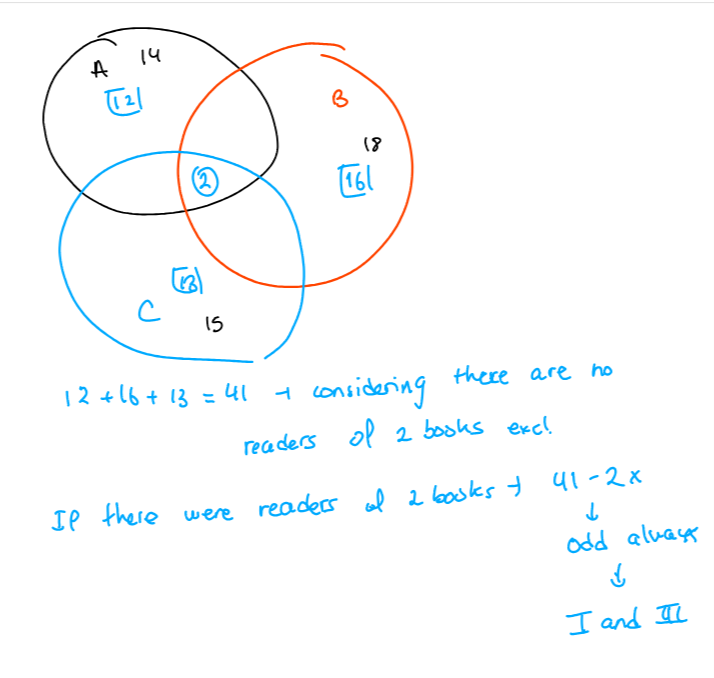 A 14
12
B
18
16
2
13
C
15
12 + 16 + 13 = 41 → considering there are no
readers of 2 books excl.
If there were readers of 2 books → 41 - 2x
↓
odd always
↓
I and III